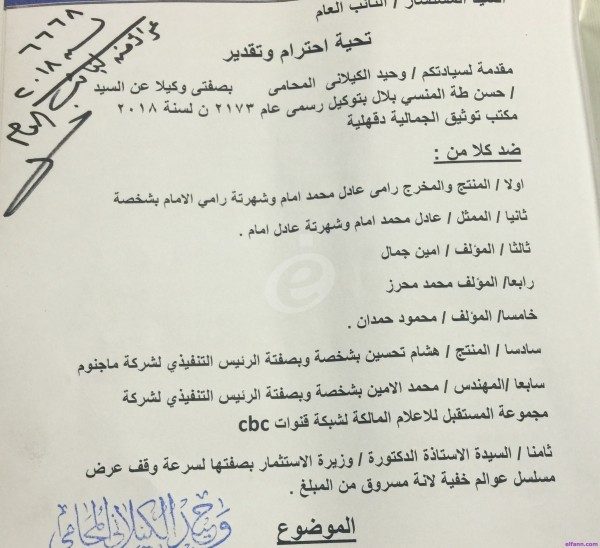 السيد المستشار / النائب العام
تحية احترام وتقدير
مقدمة لسيادتكم / وحيد الكيلانى المحامى بصفتى وكيلا عن السيد
/ حسن طة المنسي بلال بتوكيل رسمى عام ٢١٧٣ ن لسنة ٢٠١٨
مكتب توثيق الجمالية دقهلية
ضد كلا من :
اولا / المنتج والمخرج رامى عادل محمد امام وشهرتة رامي الامام بشخصة
ثانيا / الممثل / عادل محمد امام وشهرتة عادل امام .
ثالثا / المؤلف / امين جمال
رابعا/ المؤلف محمد محرز
خامسا/ المؤلف / محمود حمدان .
سادسا / المنتج / هشام تحسين بشخصة وبصفتة الرئيس التنفيذي لشركة ماجنوم
سابعا /المهندس / محمد الامين بشخصة وبصفتة الرئيس التنفيذي لشركة
مجموعة المستقبل للاعلام المالكة لشبكة قنوات cbc
ثامنا / السيدة الاستاذة الدكتورة / وزيرة الاستثمار بصفتها لسرعة وقف عرض
مسلسل عوالم خفية لانة مسروق من المبلغ .
الموضوع
وحيد الكيلانى المحامى
٦٦٦٨
٢٠١٨
elfann.com